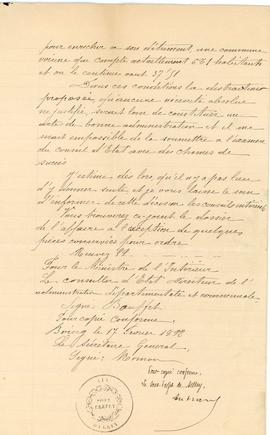 pour enrichir à son détriment, une commune
voisine que compte actuellement 581 habitants
et où le centime vaut 37f 81
Dans ces conditions la distraction
proposée, qu'aucune nécessité absolue
ne justifie, serait loin de constituer un
acte de bonne administration et il me
serait impossible de la soumettre à l'examen
du conseil d'Etat avec des chances de
succès
J'estime dès lors qu'il n'y a pas lieu
d'y donner suite et je vous laisse le soin
d'informer de cette décision les conseils intéressés
Vous trouverez ci-joint le dossier
de l'affaire à l'exception de quelques
pièces conservées pour ordre
Recevez &&
Pour le Ministre de l'Intérieur
Le conseiller d'Etat directeur de l'
administration départementale et communale
Signé:
Pour copie conforme
Bourg le 17 février 1892
Le Secrétaire Général
Signé:
Pour copie conforme
Le Sous-Préfet de